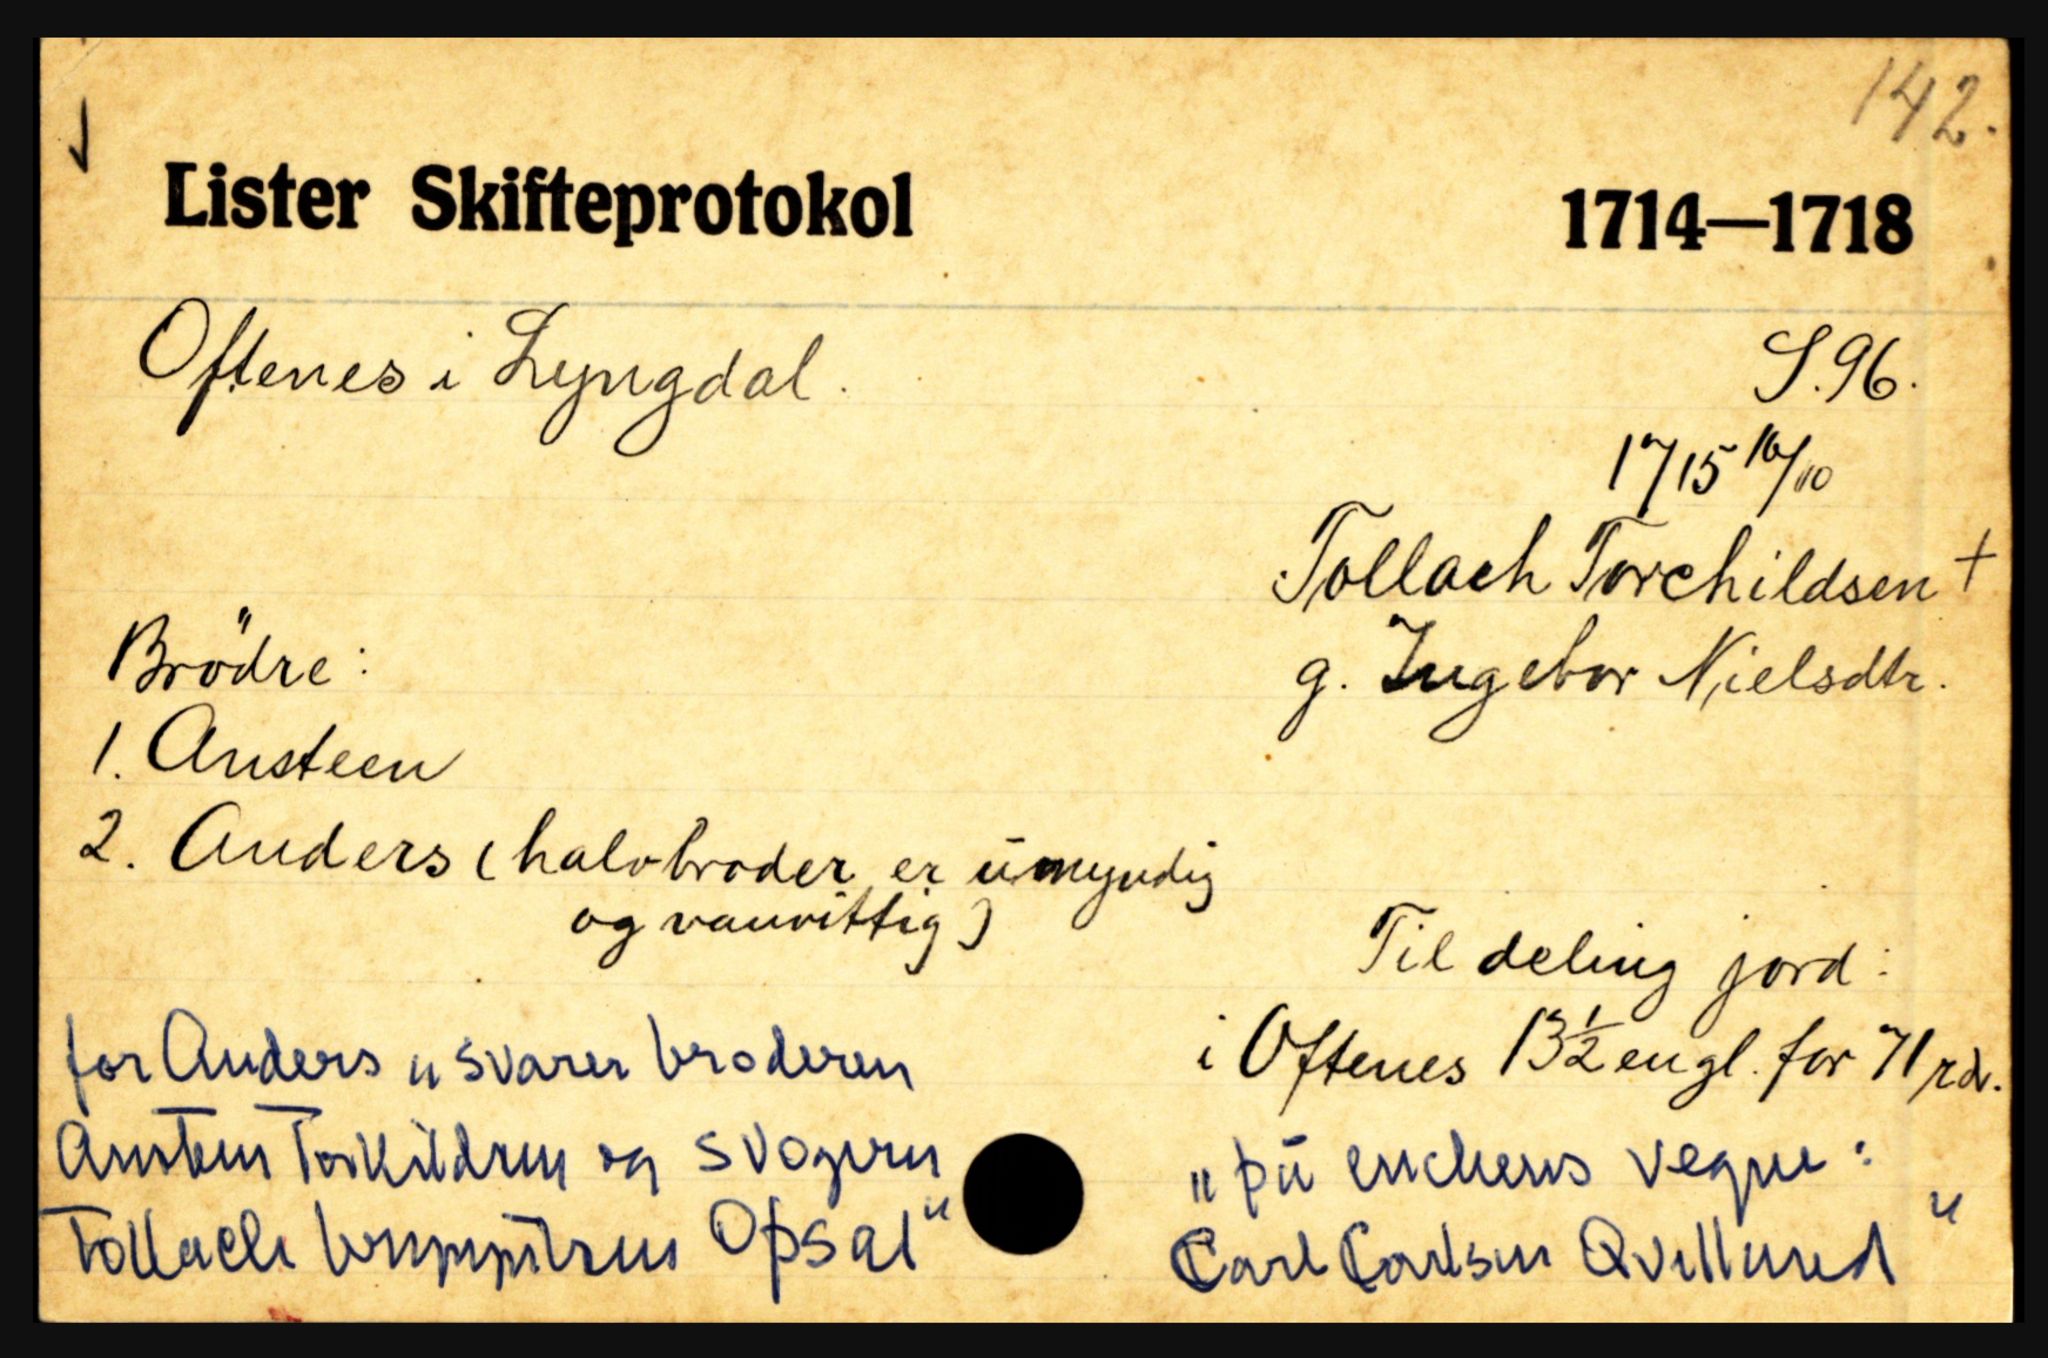 142.
Lister Skifteprotokol 1714—1718
Oftenes i Lyngdal. S. 96.
1715 16/10
Tollach Torchildsen +
Brödre: g. Ingebor Nielsdtr.
1. Ansteen
2. Anders (halvbroder er umyndig
og vanvittig)
Til deling jord:
i Oftenes 13 1/2 engl. for 71 rd.
for Anders "svarer broderen
Ansten Torkildsen og svogeren
Tollach Opsal"
"på enchens vegne:
Carl Carlsen Qvellund"